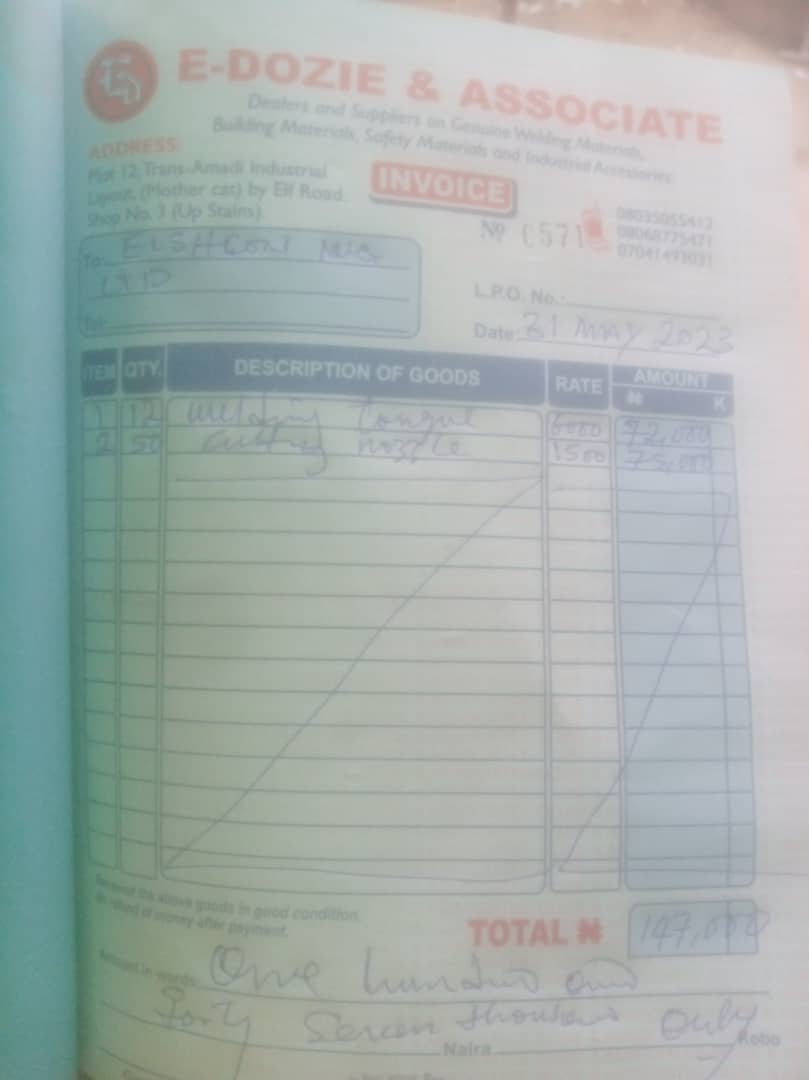 E-DOZIE & ASSOCIATE
Dealers and Suppliers on Genuine Welding Materials,
Building Materials, Safety Materials and Industrial Accessories
ADDRESS:
Plot 12, Trans-Amadi Industrial
Layout, (Mother cat) by Elf Road
Shop No. 3 (Up Stairs).
INVOICE
08035055412
08068775471
07041493031
No 0571
To: ELSHCON NIG
LTD
Tel:
L.P.O. No.:
Date 31 MAY 2023
ITEM QTY. DESCRIPTION OF GOODS RATE AMOUNT
₦ K
1 12 welding tongue 6000 72,000
2 50 cutting nozzle 1500 75,000
Received the above goods in good condition.
No refund of money after payment.
TOTAL ₦ 147,000
Amount in words One hundred and
forty seven thousand only
Naira Kobo